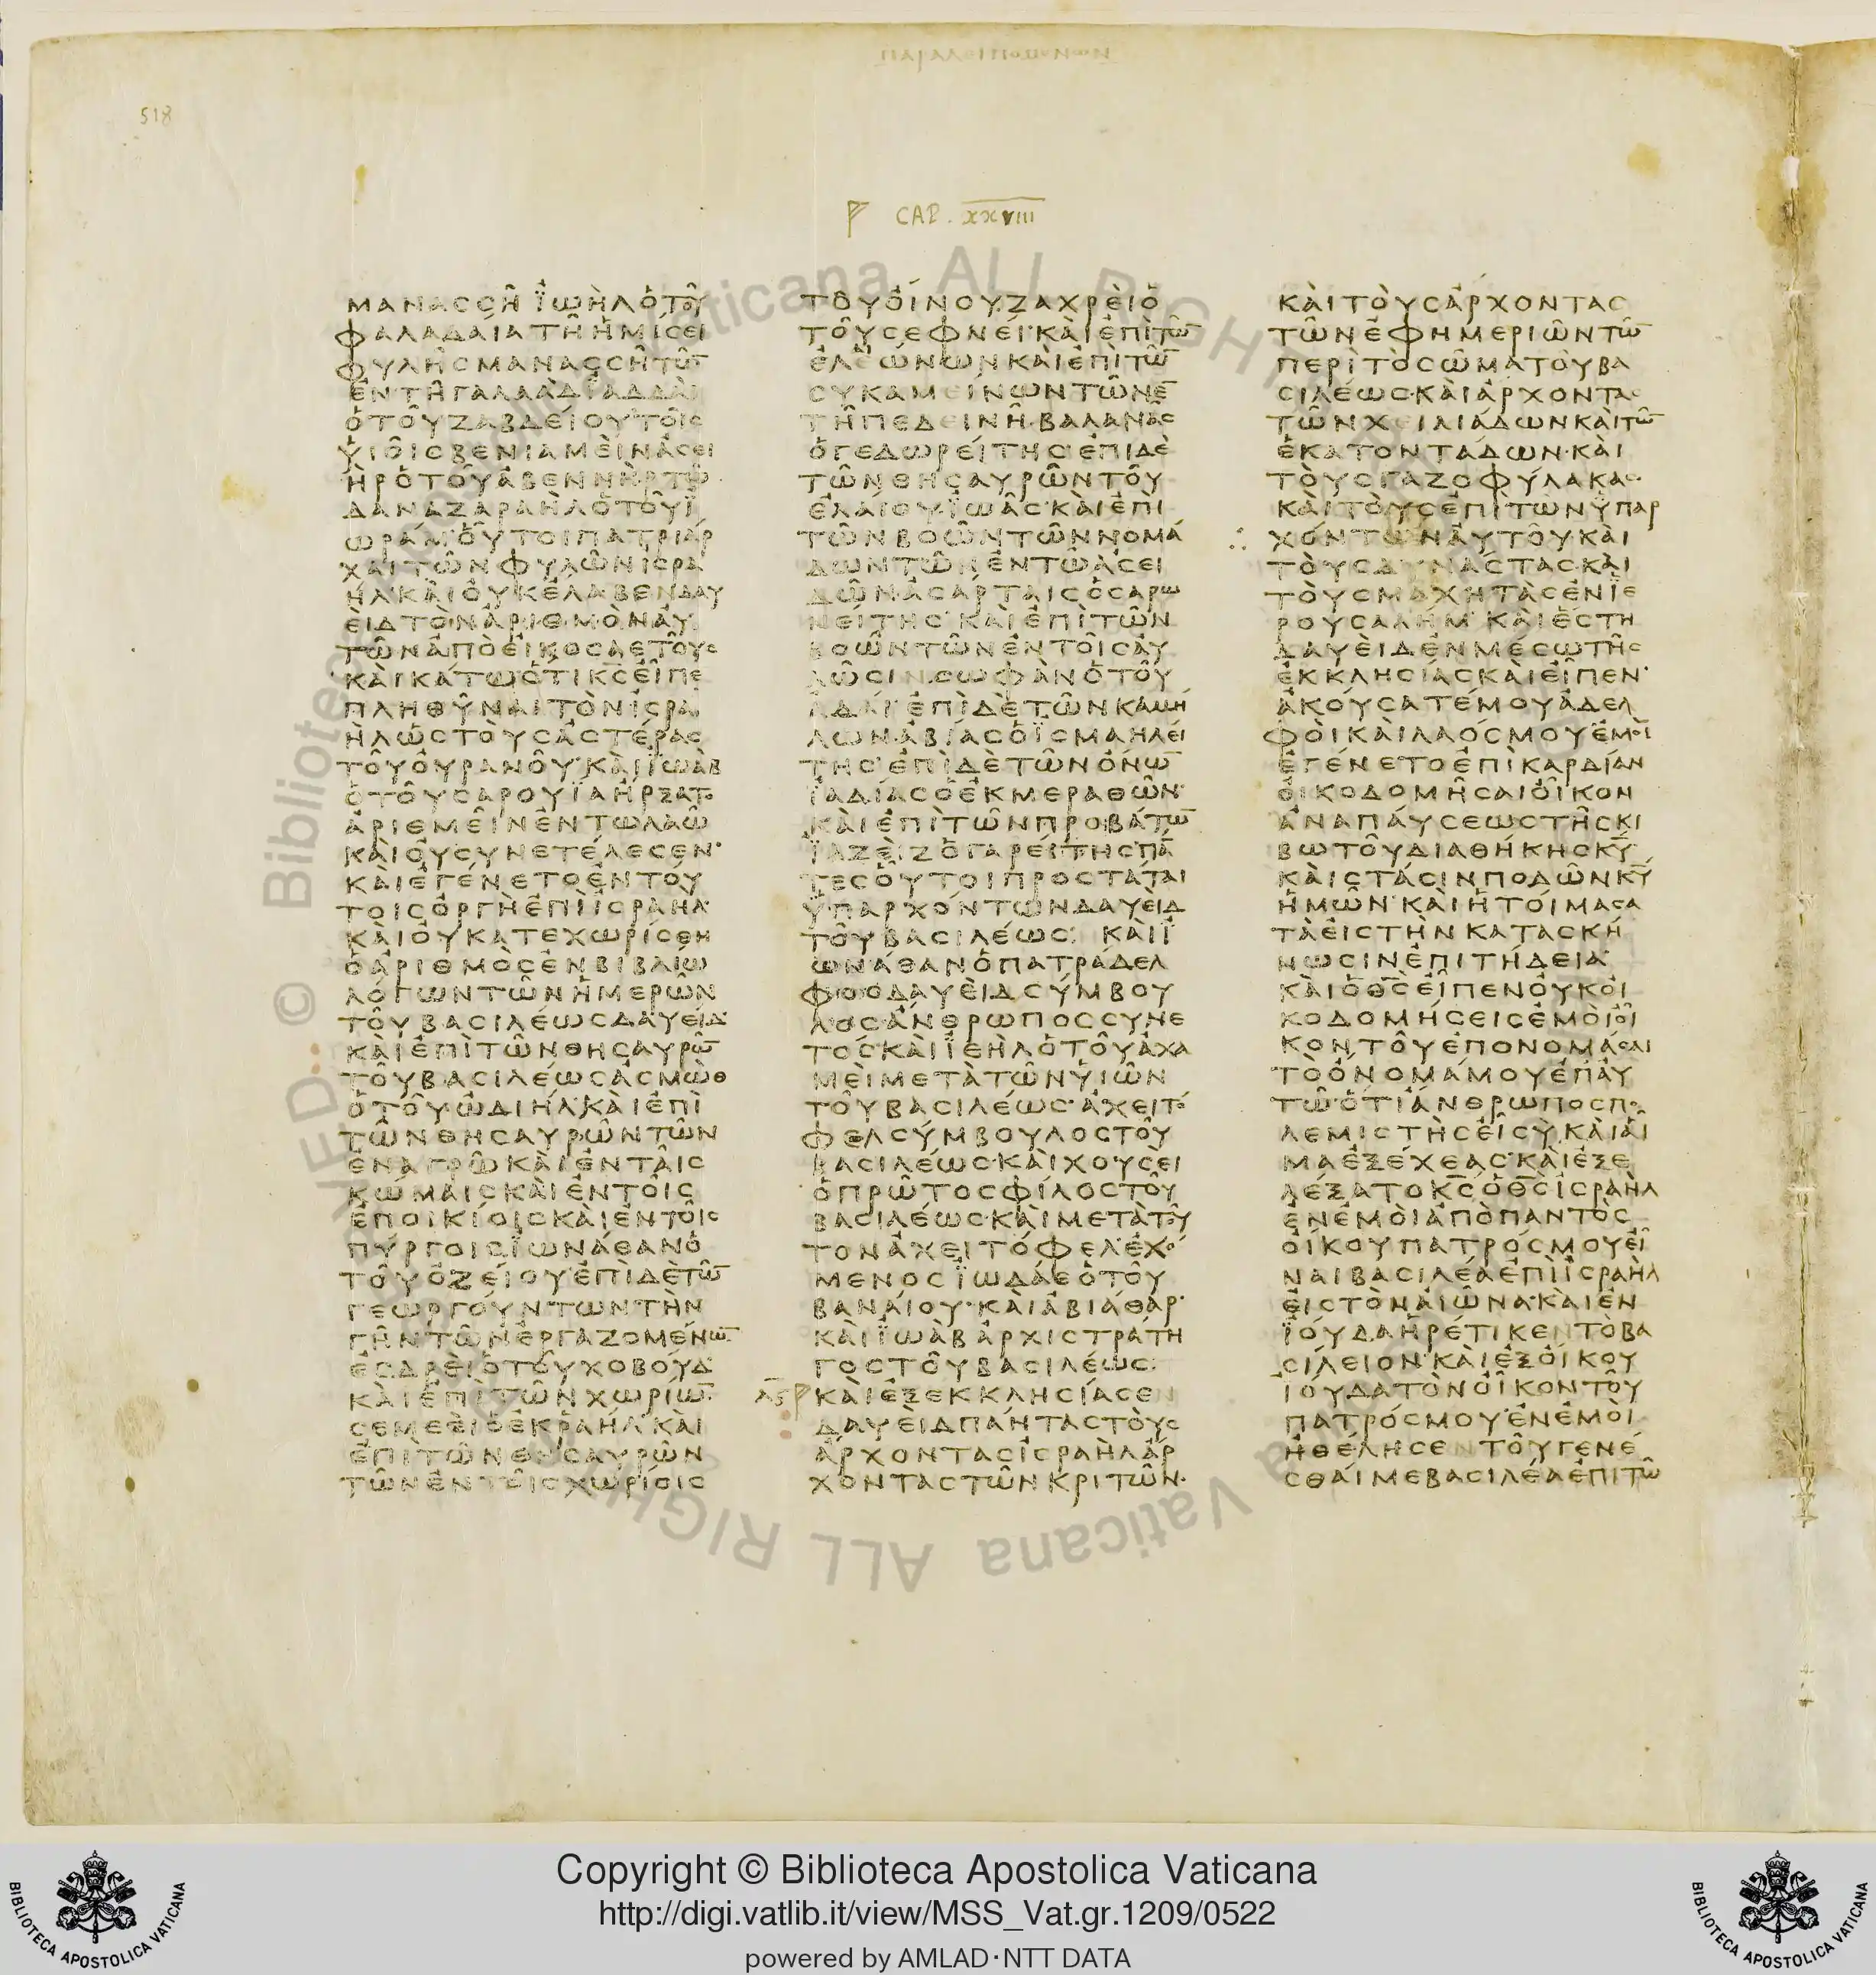 518
CAP. XXVIII
ΜΑΝΑССΗ ΪΩΗΛ Ο ΤΟΥ
ΦΑΛΑΔΑΙΑ ΤΗ ΗΜΙСΕΙ
ΦΥΛΗС ΜΑΝΑССΗ ΤΩ̄
ΕΝ ΤΗ ΓΑΛΑΑΔ ΙΑΔΔΑΙ
Ο ΤΟΥ ΖΑΒΔΕΙΟΥ ΤΟΙС
ΥΙΟΙС ΒΕΝΙΑΜΕΙΝ ΑСΕΙ
ΗΡ Ο ΤΟΥ ΑΒΕΝΝΗΡ ΤΩ
ΔΑΝ ΑΖΑΡΑΗΛ Ο ΤΟΥ Ϊ
ΩΡΑΜ ΟΥΤΟΙ ΠΑΤΡΙΑΡ
ΧΑΙ ΤΩΝ ΦΥΛΩΝ ΙСΡΑ
ΗΛ ΚΑΙ ΟΥΚ ΕΛΑΒΕΝ ΔΑΥ
ΕΙΔ ΤΟΝ ΑΡΙΘΜΟΝ ΑΥ
ΤΩΝ ΑΠΟ ΕΙΚΟСΑΕΤΟΥС
ΚΑΙ ΚΑΤΩ ΟΤΙ Κ̄С̄ ΕΙΠΕ
ΠΛΗΘΥΝΑΙ ΤΟΝ ΙСΡΑ
ΗΛ ΩС ΤΟΥС ΑСΤΕΡΑС
ΤΟΥ ΟΥΡΑΝΟΥ ΚΑΙ ΪΩΑΒ
Ο ΤΟΥ СΑΡΟΥΙΑ ΗΡΞΑΤΟ
ΑΡΙΘΜΕΙΝ ΕΝ ΤΩ ΛΑΩ
ΚΑΙ ΟΥ СΥΝΕΤΕΛΕСΕΝ
ΚΑΙ ΕΓΕΝΕΤΟ ΕΝ ΤΟΥ
ΤΟΙС ΟΡΓΗ ΕΠΙ ΙСΡΑΗΛ
ΚΑΙ ΟΥ ΚΑΤΕΧΩΡΙСΘΗ
Ο ΑΡΙΘΜΟС ΕΝ ΒΙΒΛΙΩ
ΛΟΓΩΝ ΤΩΝ ΗΜΕΡΩΝ
ΤΟΥ ΒΑСΙΛΕΩС ΔΑΥΕΙΔ
ΚΑΙ ΕΠΙ ΤΩΝ ΘΗСΑΥΡΩ̄
ΤΟΥ ΒΑСΙΛΕΩС ΑСΜΩΘ
Ο ΤΟΥ ΩΔΙΗΛ ΚΑΙ ΕΠΙ
ΤΩΝ ΘΗСΑΥΡΩΝ ΤΩΝ
ΕΝ ΑΓΡΩ ΚΑΙ ΕΝ ΤΑΙС
ΚΩΜΑΙС ΚΑΙ ΕΝ ΤΟΙС
ΕΠΟΙΚΙΟΙС ΚΑΙ ΕΝ ΤΟΙС
ΠΥΡΓΟΙС ΪΩΝΑΘΑΝ Ο
ΤΟΥ ΟΖΕΙΟΥ ΕΠΙ ΔΕ ΤΩ̄
ΓΕΩΡΓΟΥΝΤΩΝ ΤΗΝ
ΓΗΝ ΤΩΝ ΕΡΓΑΖΟΜΕΝΩ̄
ΕСΔΡΕΙ Ο ΤΟΥ ΧΟΒΟΥΔ
ΚΑΙ ΕΠΙ ΤΩΝ ΧΩΡΙΩ̄
СΕΜΕΕΙ Ο ΕΚ ΡΑΗΛ ΚΑΙ
ΕΠΙ ΤΩΝ ΘΗСΑΥΡΩΝ
ΤΩΝ ΕΝ ΤΟΙС ΧΩΡΙΟΙС
ΤΟΥ ΟΙΝΟΥ ΖΑΧΡΕΙ Ο
ΤΟΥ СΕΦΝΕΙ ΚΑΙ ΕΠΙ ΤΩ̄
ΕΛΕΩΝΩΝ ΚΑΙ ΕΠΙ ΤΩ̄
СΥΚΑΜΕΙΝΩΝ ΤΩΝ Ε̄
ΤΗ ΠΕΔΕΙΝΗ ΒΑΛΑΝΑС
Ο ΓΕΔΩΡΕΙΤΗС ΕΠΙ ΔΕ
ΤΩΝ ΘΗСΑΥΡΩΝ ΤΟΥ
ΕΛΑΙΟΥ ΪΩΑС ΚΑΙ ΕΠΙ
ΤΩΝ ΒΟΩΝ ΤΩΝ ΝΟΜΑ
ΔΩΝ ΤΩΝ ΕΝ ΤΩ ΑСΕΙ
ΔΩΝ ΑСΑΡΤΑΙС Ο СΑΡΩ
ΝΕΙΤΗС ΚΑΙ ΕΠΙ ΤΩΝ
ΒΟΩΝ ΤΩΝ ΕΝ ΤΟΙС ΑΥ
ΛΩСΙΝ СΩΦΑΝ Ο ΤΟΥ
ΑΔΑΙ ΕΠΙ ΔΕ ΤΩΝ ΚΑΜΗ
ΛΩΝ ΑΒΙΑС Ο ΪСΜΑΗΛΕΙ
ΤΗС ΕΠΙ ΔΕ ΤΩΝ ΟΝΩ̄
ΪΑΔΙΑС Ο ΕΚ ΜΕΡΑΘΩΝ
ΚΑΙ ΕΠΙ ΤΩΝ ΠΡΟΒΑΤΩ̄
ΪΑΖΕΙΖ Ο ΓΑΡΕΙΤΗС ΠᾹ
ΤΕС ΟΥΤΟΙ ΠΡΟСΤΑΤΑΙ
ΥΠΑΡΧΟΝΤΩΝ ΔΑΥΕΙΔ
ΤΟΥ ΒΑСΙΛΕΩС ΚΑΙ Ϊ
ΩΝΑΘΑΝ Ο ΠΑΤΡΑΔΕΛ
ΦΟС ΔΑΥΕΙΔ СΥΜΒΟΥ
ΛΟС ΑΝΘΡΩΠΟС СΥΝΕ
ΤΟС ΚΑΙ ΪΕΗΛ Ο ΤΟΥ ΑΧΑ
ΜΕΙ ΜΕΤΑ ΤΩΝ ΥΙΩΝ
ΤΟΥ ΒΑСΙΛΕΩС ΑΧΕΙΤΟ
ΦΕΛ СΥΜΒΟΥΛΟС ΤΟΥ
ΒΑСΙΛΕΩС ΚΑΙ ΧΟΥСΕΙ
Ο ΠΡΩΤΟС ΦΙΛΟС ΤΟΥ
ΒΑСΙΛΕΩС ΚΑΙ ΜΕΤΑ ΤΟΥ
ΤΟΝ ΑΧΕΙΤΟΦΕΛ ΕΧΟ
ΜΕΝΟС ΪΩΔΑΕ Ο ΤΟΥ
ΒΑΝΑΙΟΥ ΚΑΙ ΑΒΙΑΘΑΡ
ΚΑΙ ΪΩΑΒ ΑΡΧΙСΤΡΑΤΗ
ΓΟС ΤΟΥ ΒΑСΙΛΕΩС
ΚΑΙ ΕΞΕΚΚΛΗСΙΑСΕΝ
ΔΑΥΕΙΔ ΠΑΝΤΑС ΤΟΥС
ΑΡΧΟΝΤΑС ΙСΡΑΗΛ ΑΡ
ΧΟΝΤΑС ΤΩΝ ΚΡΙΤΩΝ
ΚΑΙ ΤΟΥС ΑΡΧΟΝΤΑС
ΤΩΝ ΕΦΗΜΕΡΙΩΝ ΤΩ̄
ΠΕΡΙ ΤΟ СΩΜΑ ΤΟΥ ΒΑ
СΙΛΕΩС ΚΑΙ ΑΡΧΟΝΤΑС
ΤΩΝ ΧΕΙΛΙΑΔΩΝ ΚΑΙ ΤΩ̄
ΕΚΑΤΟΝΤΑΔΩΝ ΚΑΙ
ΤΟΥС ΓΑΖΟΦΥΛΑΚΑС
ΚΑΙ ΤΟΥС ΕΠΙ ΤΩΝ ΥΠΑΡ
ΧΟΝΤΩΝ ΑΥΤΟΥ ΚΑΙ
ΤΟΥС ΔΥΝΑСΤΑС ΚΑΙ
ΤΟΥС ΜΑΧΗΤΑС ΕΝ ΪΕ
ΡΟΥСΑΛΗΜ ΚΑΙ ΕСΤΗ
ΔΑΥΕΙΔ ΕΝ ΜΕСΩ ΤΗС
ΕΚΚΛΗСΙΑС ΚΑΙ ΕΙΠΕΝ
ΑΚΟΥСΑΤΕ ΜΟΥ ΑΔΕΛ
ΦΟΙ ΚΑΙ ΛΑΟС ΜΟΥ ΕΜΟΙ
ΕΓΕΝΕΤΟ ΕΠΙ ΚΑΡΔΙΑΝ
ΟΙΚΟΔΟΜΗСΑΙ ΟΙΚΟΝ
ΑΝΑΠΑΥСΕΩС ΤΗС ΚΙ
ΒΩΤΟΥ ΔΙΑΘΗΚΗС Κ̄Ῡ
ΚΑΙ СΤΑСΙΝ ΠΟΔΩΝ Κ̄Ῡ
ΗΜΩΝ ΚΑΙ ΗΤΟΙΜΑСΑ
ΤΑ ΕΙС ΤΗΝ ΚΑΤΑСΚΗ
ΝΩСΙΝ ΕΠΙΤΗΔΕΙΑ
ΚΑΙ Ο Θ̄С̄ ΕΙΠΕΝ ΟΥΚ ΟΙ
ΚΟΔΟΜΗСΕΙС ΕΜΟΙ ΟΙ
ΚΟΝ ΤΟΥ ΕΠΟΝΟΜΑСΑΙ
ΤΟ ΟΝΟΜΑ ΜΟΥ ΕΠ ΑΥ
ΤΩ ΟΤΙ ΑΝΘΡΩΠΟС ΠΟ
ΛΕΜΙСΤΗС ΕΙ СΥ ΚΑΙ ΑΙ
ΜΑ ΕΞΕΧΕΑС ΚΑΙ ΕΞΕ
ΛΕΞΑΤΟ Κ̄С̄ Ο Θ̄С̄ ΙСΡΑΗΛ
ΕΝ ΕΜΟΙ ΑΠΟ ΠΑΝΤΟС
ΟΙΚΟΥ ΠΑΤΡΟС ΜΟΥ ΕΙ
ΝΑΙ ΒΑСΙΛΕΑ ΕΠΙ ΙСΡΑΗΛ
ΕΙС ΤΟΝ ΑΙΩΝΑ ΚΑΙ ΕΝ
ΪΟΥΔΑ ΗΡΕΤΙΚΕΝ ΤΟ ΒΑ
СΙΛΕΙΟΝ ΚΑΙ ΕΞ ΟΙΚΟΥ
ΪΟΥΔΑ ΤΟΝ ΟΙΚΟΝ ΤΟΥ
ΠΑΤΡΟС ΜΟΥ ΕΝ ΕΜΟΙ
ΗΘΕΛΗСΕΝ ΤΟΥ ΓΕΝΕ
СΘΑΙ ΜΕ ΒΑСΙΛΕΑ ΕΠΙ ΤΩ̄
Copyright © Biblioteca Apostolica Vaticana
http://digi.vatlib.it/view/MSS_Vat.gr.1209/0522
powered by AMLAD·NTT DATA
BIBLIOTECA APOSTOLICA VATICANA
BIBLIOTECA APOSTOLICA VATICANA